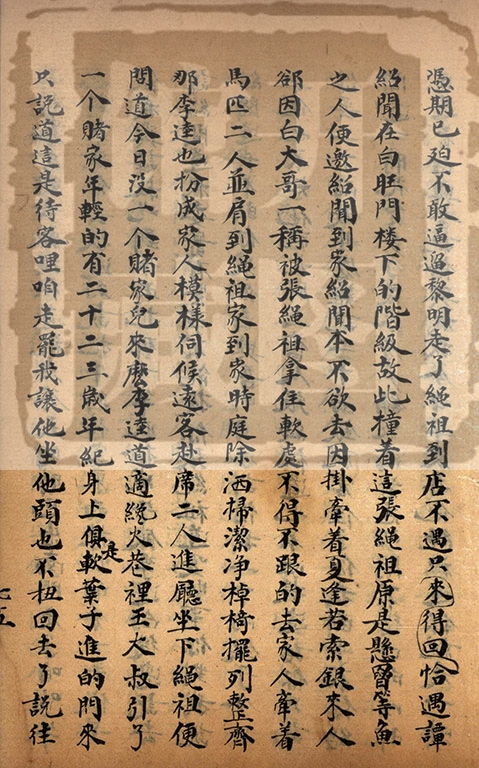 憑期已廹不敢逼遛黎明走了繩祖到店不遇只來得回恰遇譚
紹聞在白旺門楼下的階級故此撞着這張繩祖原是懸竇等魚
之人便邀紹聞到家紹聞本不欲去因掛牽着夏逢若索銀來人
郤因白大哥一稱被張繩祖拿住軟處不得不跟的去家人牽着
馬匹二人並肩到繩祖家到家時庭除洒掃潔净棹椅擺列整齊
那李逵也扮成家人模樣伺候遠客赴席二人進廳坐下繩祖便
問道今日没一个賭家兒來麽李逵道適纔火巷裡王大叔引了
一个賭家年輕的有二十二三歲年紀身上俱是軟葉子進的門來
只説道這是待客哩咱走罷我讓他坐他頭也不扭回去了説往
七五